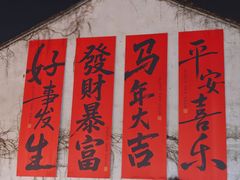 好事发生
發財暴富
马年大吉
平安喜乐